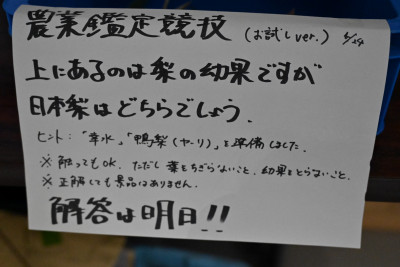 農業鑑定競技 (お試しver.) 6/24
上にあるのは梨の幼果ですが
日本梨はどちらでしょう.
ヒント:「幸水」,「鴨梨(ヤーリ)」を準備しました.
※触ってもOK. ただし葉をちぎらないこと. 幼果をとらないこと.
※正解しても景品はありません.
解答は明日!!